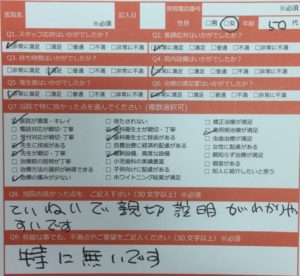 医院名 ※必須 記入日 医院電話番号 ※必須
性別 □男 □女 年齢 50 代
Q1. スタッフ対応はいかがでしたか? ※必須 Q2. 医師対応はいかがでしたか? ※必須
□非常に満足 □満足 □普通 □不満 □非常に不満 □非常に満足 □満足 □普通 □不満 □非常に不満
Q3. 待ち時間はいかがでしたか? ※必須 Q4. 院内設備はいかがでしたか? ※必須
□非常に満足 □満足 □普通 □不満 □非常に不満 □非常に満足 □満足 □普通 □不満 □非常に不満
Q5. 衛生面はいかがでしたか? ※必須 Q6. 治療の満足度はいかがでしたか? ※必須
□非常に満足 □満足 □普通 □不満 □非常に不満 □非常に満足 □満足 □普通 □不満 □非常に不満
Q7. 当院で特に良かった点を選んでください(複数選択可)
□医院が清潔・キレイ □待たされない □矯正治療が満足
□電話対応が親切・丁寧 □歯科衛生士が親切・丁寧 □歯周病治療が満足
□受付が親切・丁寧 □歯科衛生士に技術がある □虫歯治療が満足
□先生に技術がある □自費治療に経済的配慮がある □女性に配慮がある
□先生が親切・丁寧 □最新設備、高度な設備 □親知らず治療が満足
□治療前の説明が丁寧 □小児歯科の実績豊富 □個室がある
□治療後の説明が丁寧 □子供向けに配慮がある □知人に紹介したいと思う
□治療の痛みが少ない □ホワイトニング結果が満足
Q8. 当院の良かった点を、ご記入下さい(30文字以上) ※必須
ていねいで親切説明がわかりや
すいです
Q9. 些細な事でも、不満点やご要望をご記入ください(30文字以上) ※必須
特に無いです